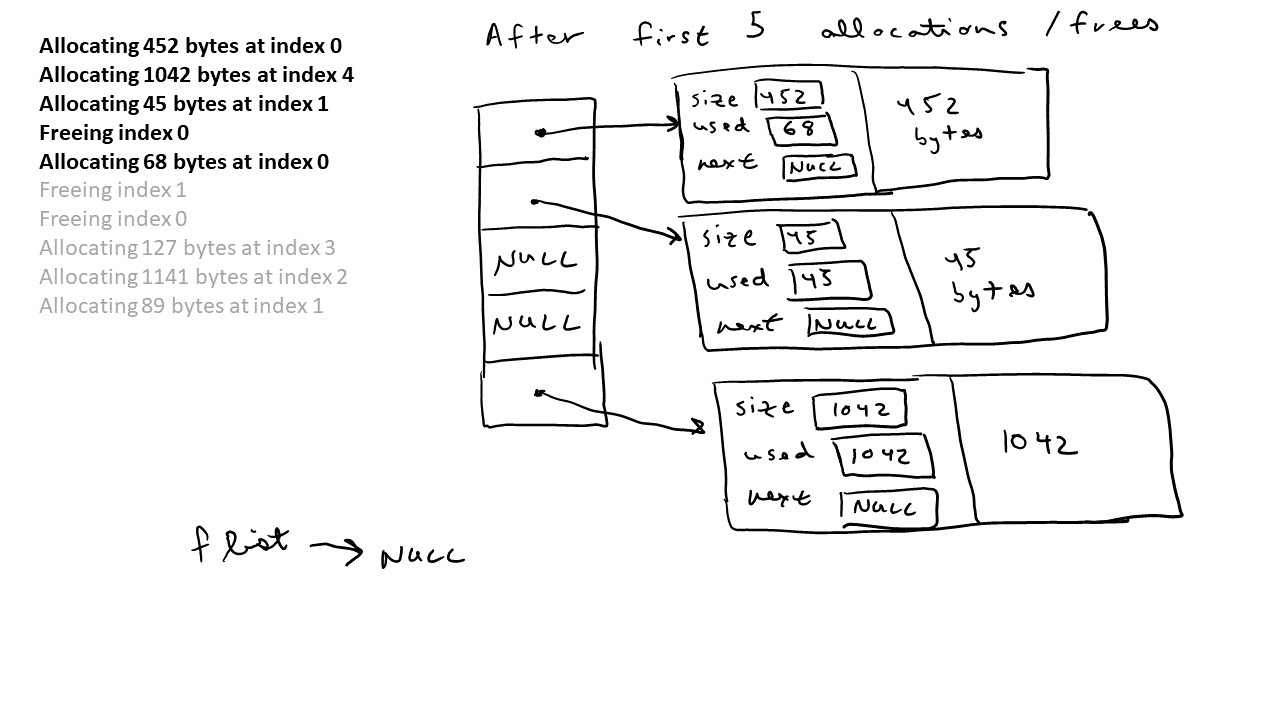 After first 5 allocations / frees
Allocating 452 bytes at index 0
Allocating 1042 bytes at index 4
Allocating 45 bytes at index 1
Freeing index 0
Allocating 68 bytes at index 0
Freeing index 1
Freeing index 0
Allocating 127 bytes at index 3
Allocating 1141 bytes at index 2
Allocating 89 bytes at index 1
NULL
NULL
size 452
used 68
next NULL
452
bytes
size 45
used 45
next NULL
45
bytes
size 1042
used 1042
next NULL
1042
flist → NULL